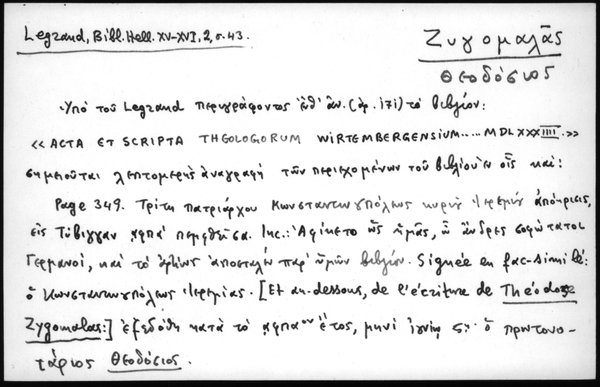 Legrand, Bibl. Hell. XV-XVI, 2, σ. 43.
Ζυγομαλᾶς
Θεοδόσιος
Ὑπὸ τοῦ Legrand περιγράφοντος ἐνθ' ἀν. (ἀρ. 171) τὸ βιβλίον:
«ACTA ET SCRIPTA THEOLOGORUM WIRTEMBERGENSIUM..... MDLXXXIIII.»
σημειοῦται λεπτομερὴς ἀναγραφὴ τῶν περιεχομένων τοῦ βιβλίου ἐν οἷς καὶ:
Page 349. Τρίτη πατριάρχου Κωνσταντινουπόλεως κυρίου Ἱερεμίου ἀπόκρισις,
εἰς Τύβιγγαν αφπα πεμφθεῖσα. Inc.: Ἀφίκετο ὡς ἡμᾶς, ὦ ἄνδρες σοφώτατοι
Γερμανοί, καὶ τὸ ἀποσταλὲν παρ' ὑμῶν βιβλίον. Signée en fac-similé:
ὁ Κωνσταντινουπόλεως Ἱερεμίας. [Et au-dessous, de l'écriture de Théodose
Zygomalas:] ἐξεδόθη κατὰ τὸ αφπαον ἔτος, μηνὶ ὁ πρωτονο-
τάριος Θεοδόσιος.